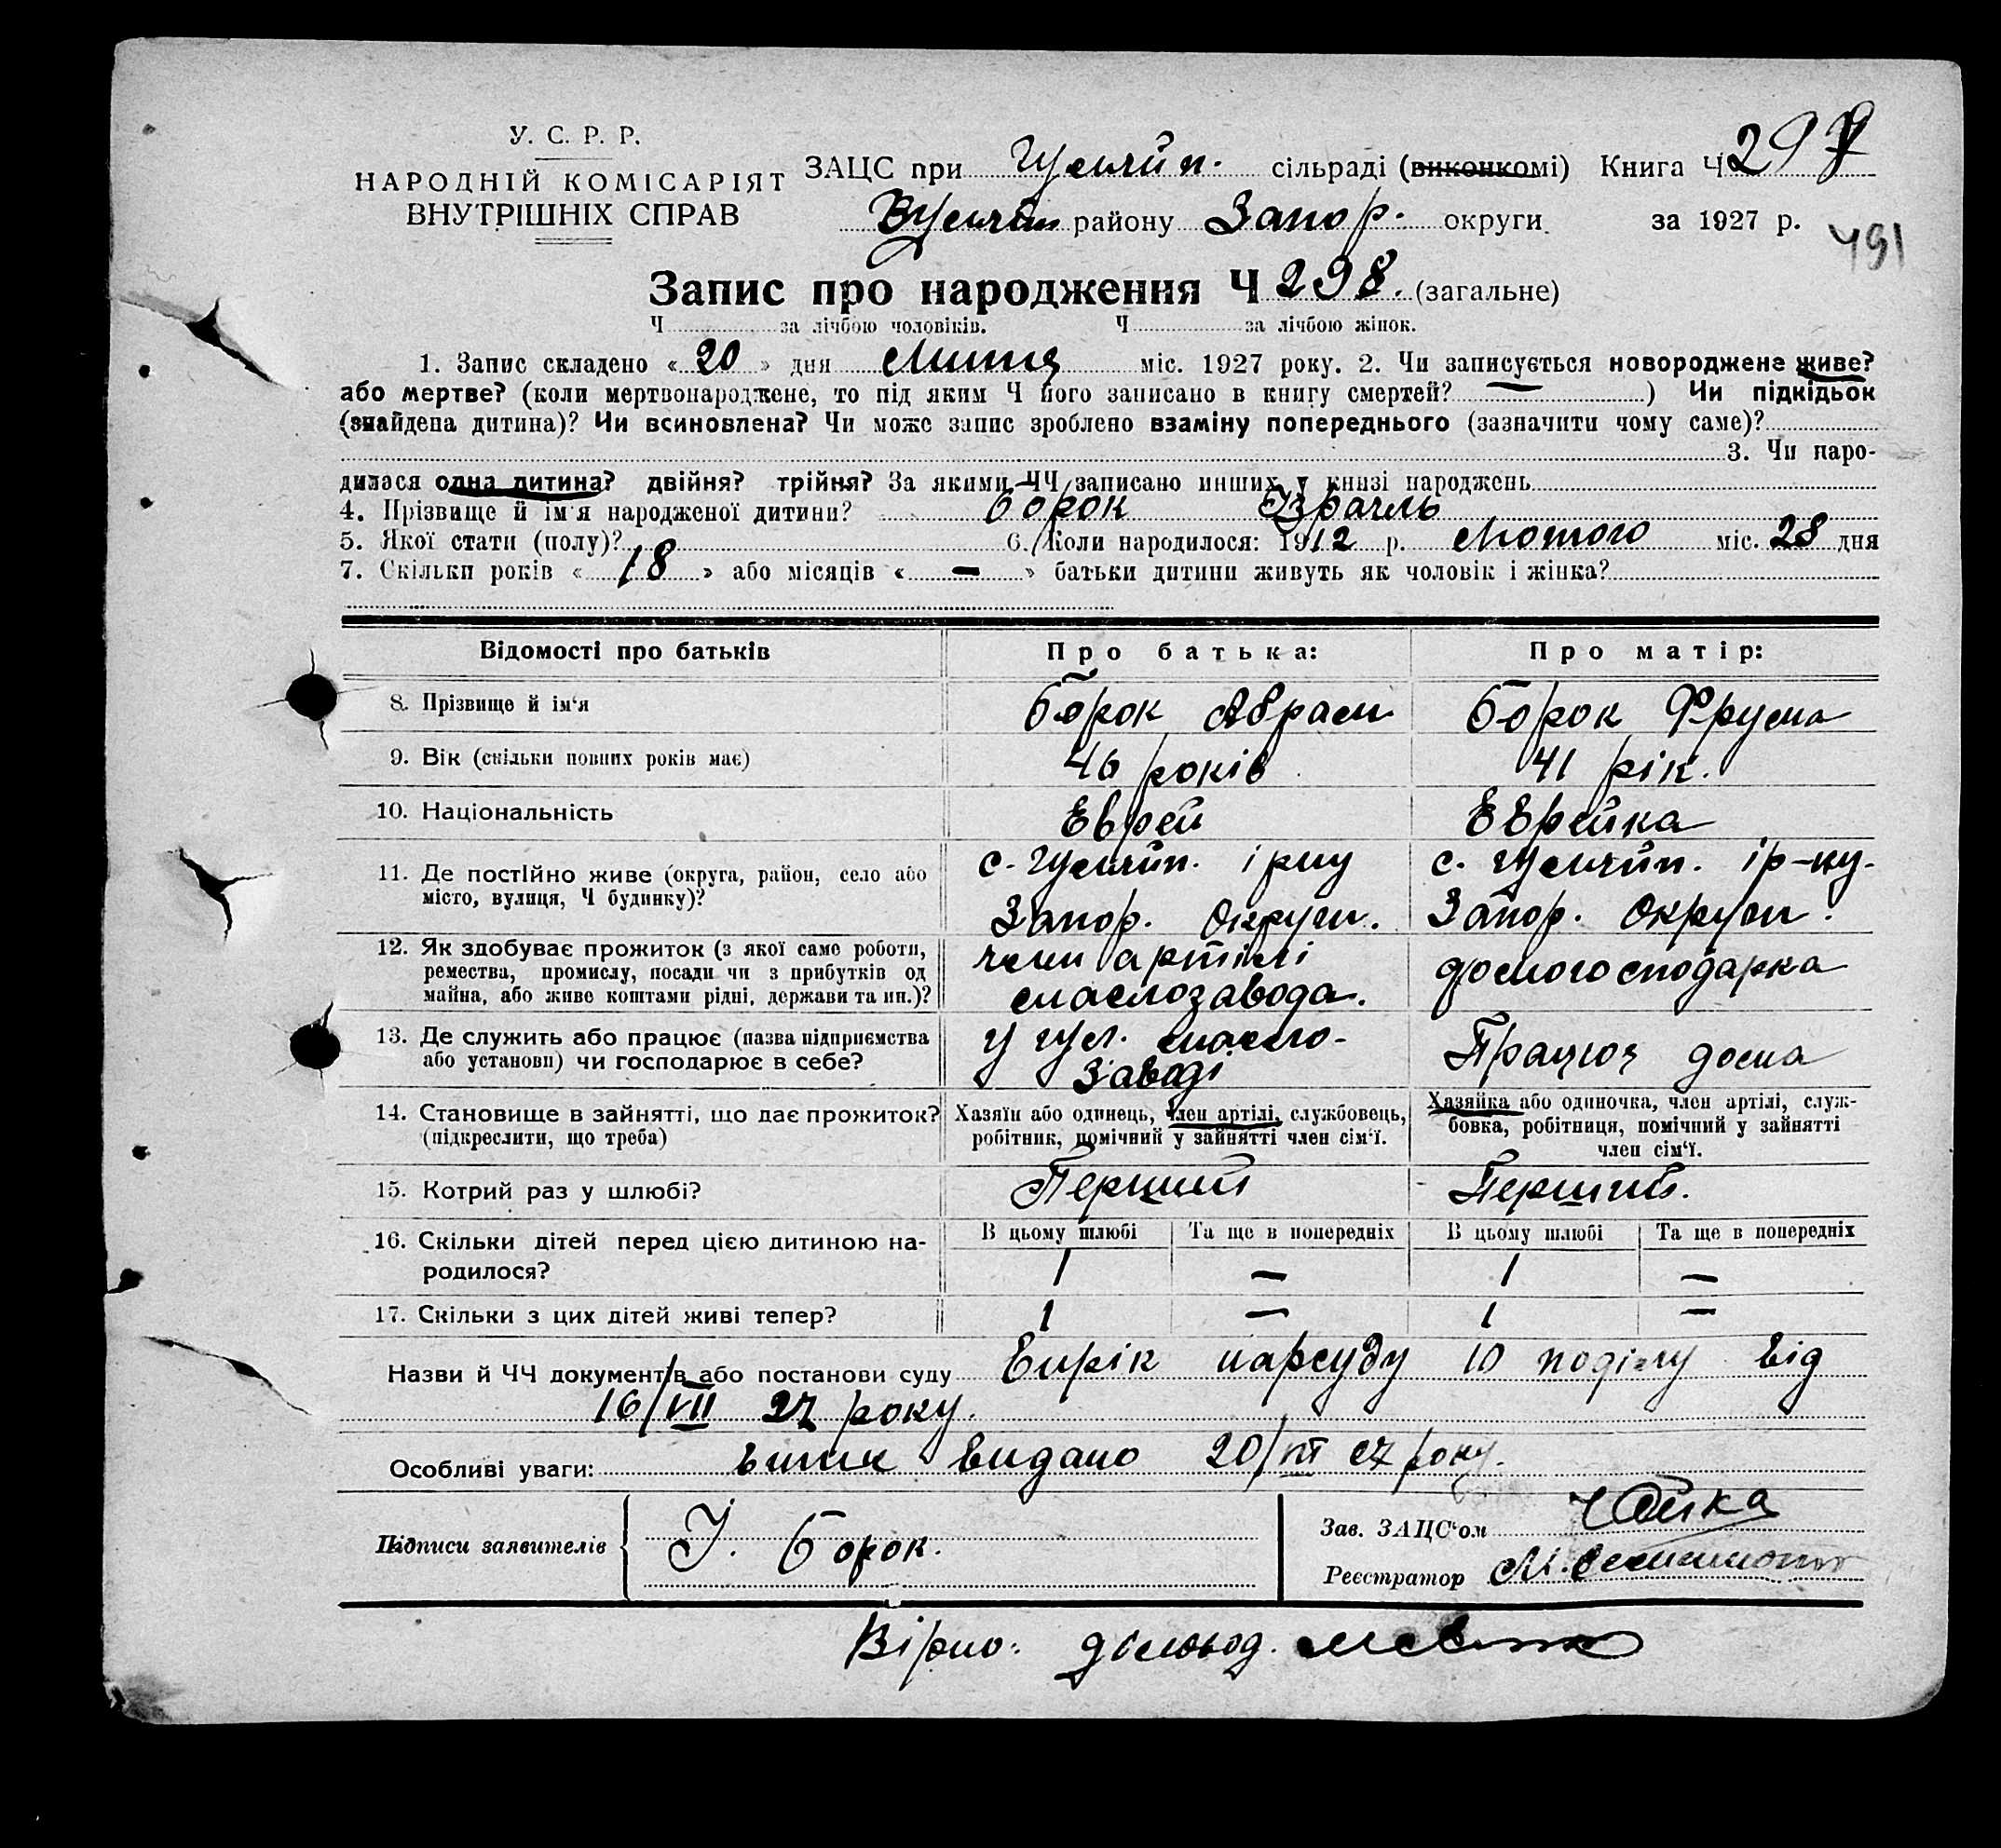 У. С. Р. Р.
НАРОДНІЙ КОМІСАРІЯТ
ВНУТРІШНІХ СПРАВ
ЗАЦС при Гуляйп. сільраді (виконкомі) Книга Ч 297
району Запор. округи за 1927 р.
491
Запис про народження Ч 298. (загальне)
Ч за лічбою чоловіків. Ч за лічбою жінок.
1. Запис складено « 20 » дня Липня міс. 1927 року. 2. Чи записується новороджене живе?
або мертве? (коли мертвонароджене, то під яким Ч його записано в книгу смертей? — ) Чи підкідьок
(знайдена дитина)? Чи всиновлена? Чи може запис зроблено взаміну попереднього (зазначити чому саме)?
3. Чи наро-
дилася одна дитина? двійня? трійня? За якими ЧЧ записано инших у книзі народжень
4. Прізвище й ім'я народженої дитини? Борок Ізраїль
5. Якої стати (полу)? 6. Коли народилося: 1912 р. Лютого міс. 28 дня
7. Скільки років « 18 » або місяців « — » батьки дитини живуть як чоловік і жінка?
Відомості про батьків Про батька: Про матір:
8. Прізвище й ім'я Борок Абрам Борок Фрума
9. Вік (скільки повних років має) 46 років 41 рік.
10. Національність Еврей Еврейка
11. Де постійно живе (округа, район, село або місто, вулиця, Ч будинку)?
с. Гуляйп. і рну Запор. Округи.
с. Гуляйп. і р-ну. Запор. Округи.
12. Як здобуває прожиток (з якої саме роботи, ремества, промислу, посади чи з прибутків од майна, або живе коштами рідні, держави та ин.)?
член артілі маслозавода.
домогосподарка
13. Де служить або працює (назва підприємства або установи) чи господарює в себе?
у Гул. масло-заводі
Працює дома
14. Становище в зайнятті, що дає прожиток? (підкреслити, що треба)
Хазяїн або одинець, член артілі, службовець, робітник, помічний у зайнятті член сім'ї.
Хазяйка або одиночка, член артілі, служ-бовка, робітниця, помічний у зайнятті член сім'ї.
15. Котрий раз у шлюбі? Перший Перший.
16. Скільки дітей перед цією дитиною на-родилося?
В цьому шлюбі Та ще в попередніх В цьому шлюбі Та ще в попередніх
1 — 1 —
17. Скільки з цих дітей живі тепер? 1 — 1 —
Назви й ЧЧ документів або постанови суду нарсуду 10 поділу від
16/VII 27 року.
Особливі уваги: видано 20/VII 27 року.
Підписи заявителів І. Борок.
Зав. ЗАЦС'ом
Реєстратор М.
Вірно: діловод.